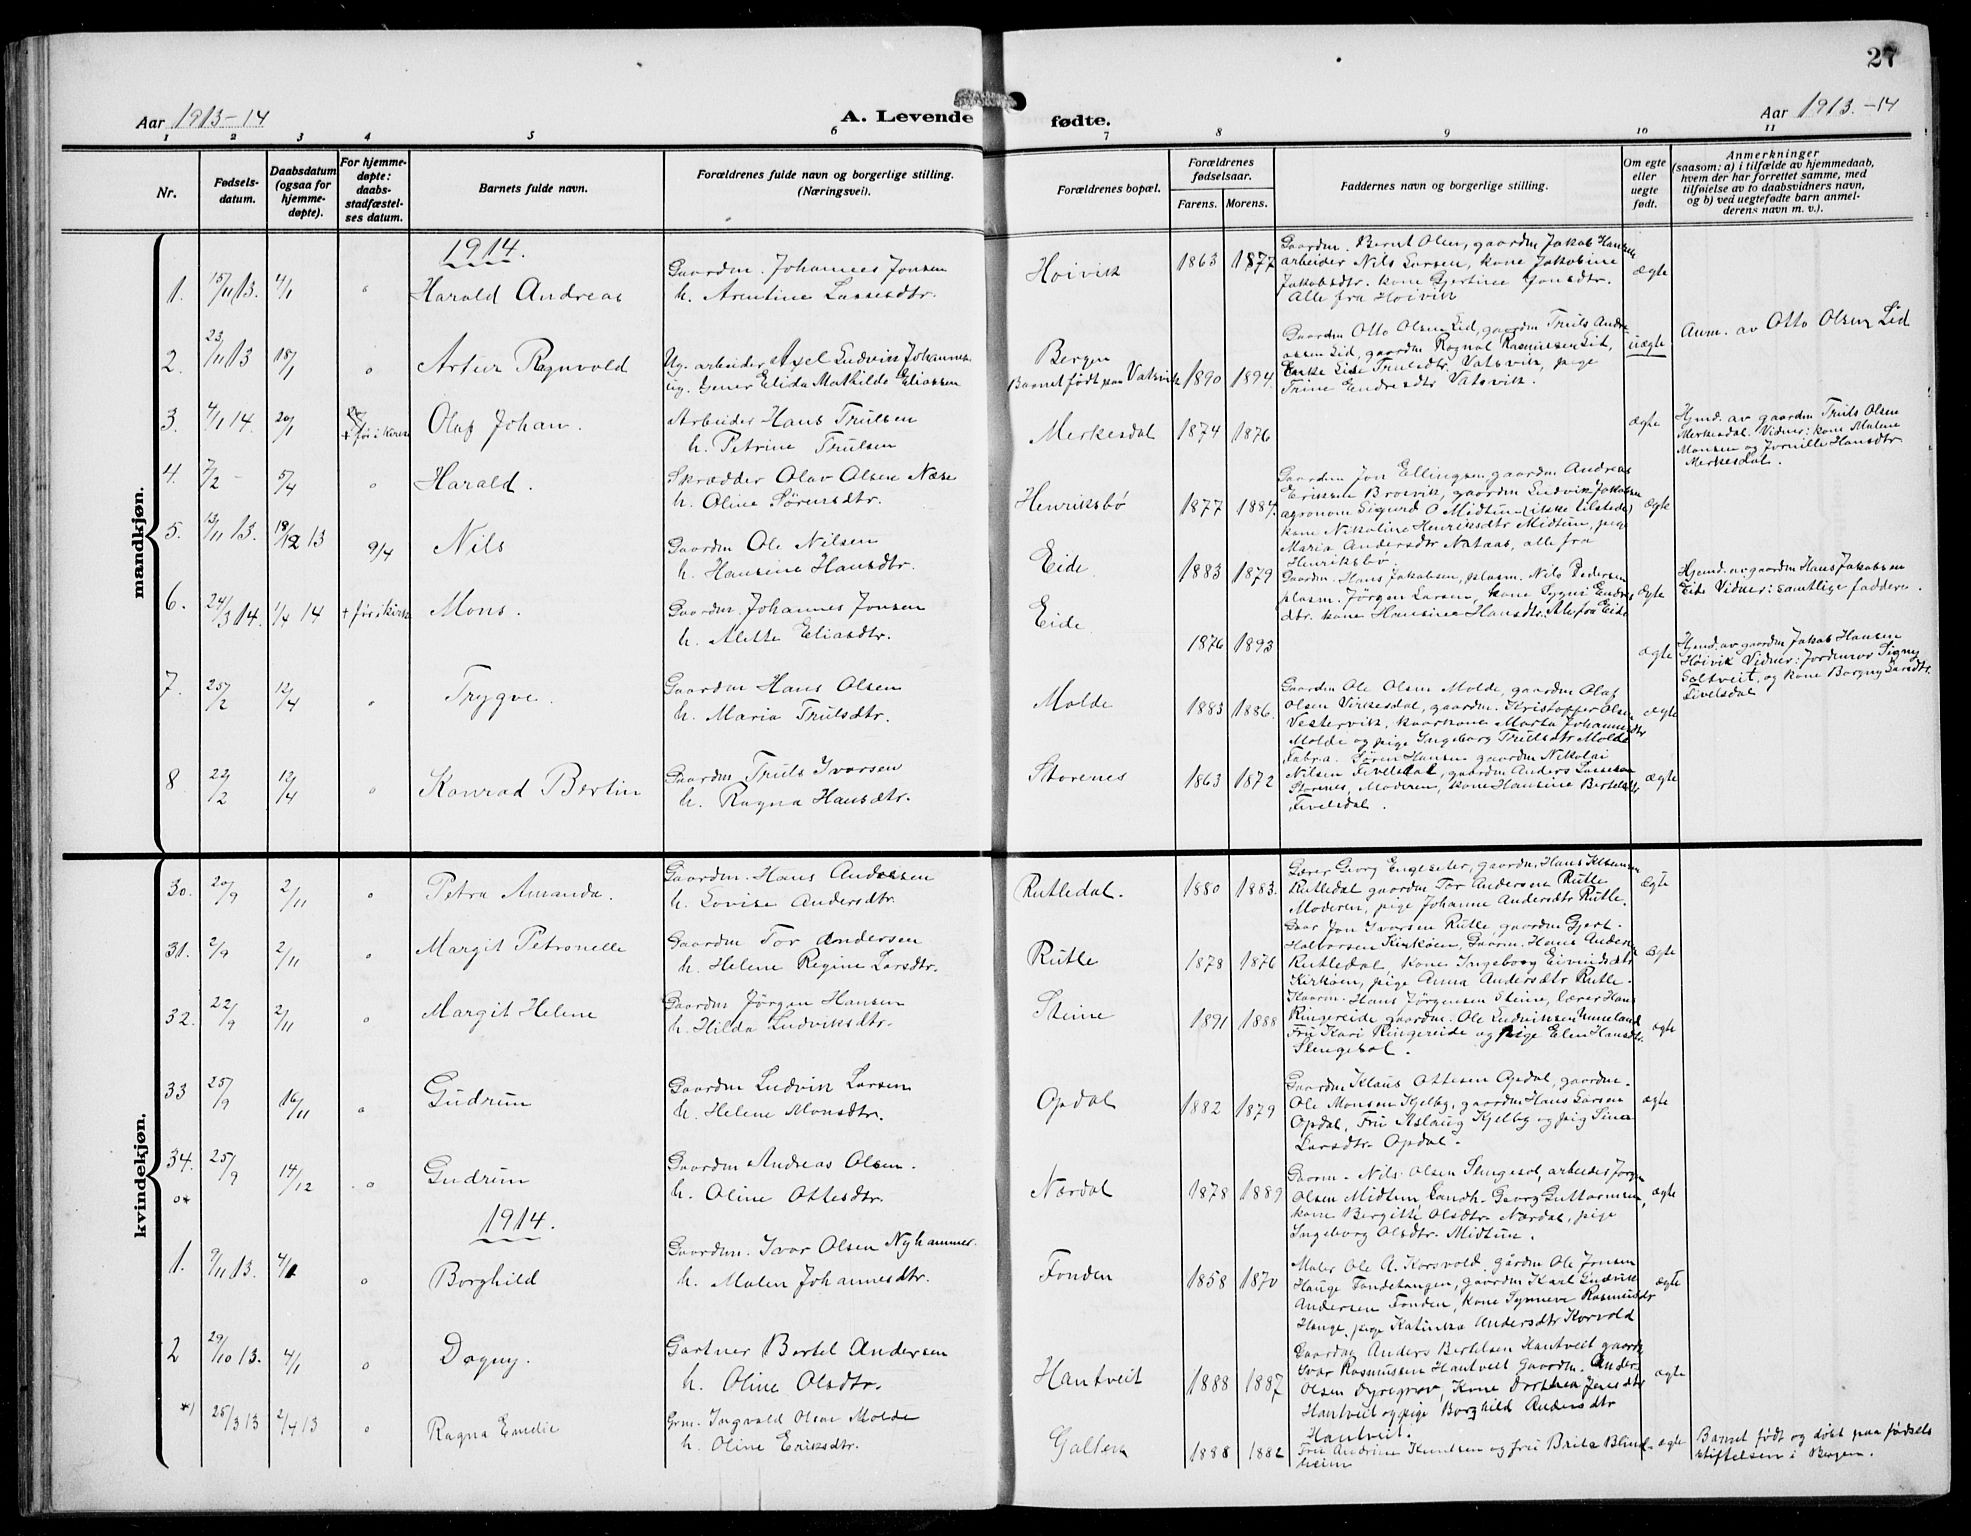 27
Aar 1913-14
A. Levende fødte.
Aar 1913.-14
1 2 3 4 5 6 7 8 9 10 11
Nr.
Fødsels-
datum.
Daabsdatum
(ogsaa for
hjemme-
døpte).
For hjemme-
døpte:
daabs-
stadfæstel-
ses datum.
Barnets fulde navn.
Forældrenes fulde navn og borgerlige stilling.
(Næringsvei).
Forældrenes bopæl.
Forældrenes
fødselsaar.
Farens. Morens.
Faddernes navn og borgerlige stilling.
Om egte
eller
uegte
født.
Anmerkninger
(saasom: a) i tilfælde av hjemmedaab,
hvem der har forrettet samme, med
tilføielse av to daabsvidners navn,
og b) ved uegtefødte barn anmel-
derens navn m. v.).
mandkjøn.
1914.
1. 15/11 13. 4/1 " Harald Andreas
Gaardm. Johannes Jonsen
h. Arentine Lassesdtr.
Høivik 1863 1877
Gaardm. Bernt Olsen, gaardm Jakob Hansen
arbeider Nils Larsen, kone Jakobine
Jakobsdtr. kone Gjertine Jonsdtr.
Alle fra Høivik
ægte
2. 23/11 13 18/1 " Artur Ragnvald
Ug. arbeider Axel Ludvik Johannes.
ug. Elida Mathilde Eliassen
Bergen
Barnet født paa Vatsvik 1890 1894.
Gaardm Otto Olsen Lid, gaardm Truls Andre
assen Lid, gaardm Ragnal Rasmussen Lid,
Enke Lise Trulsdtr. Vatsvik, pige
Trine Endresdtr Vatsvik.
uægte
Anm. av Otto Olsen Lid
3. 4/1 14. 20/1 + før i kirken Olaf Johan.
Arbeider Hans Trulsen
h. Petrine Trulsen
Merkesdal 1874 1876
ægte
Hjmd. av gaardm Truls Olsen
Merkesdal. Vidner: kone Malene
Monsen og Jornille Hansdtr
Merkesdal.
4. 7/2 - 5/4 " Harald.
Skrædder Olav Olsen Næse
h. Oline Sørensdtr.
Henriksbø 1877 1887.
Gaardm Jon Ellingsen gaardm Andreas
Eriksen Brosvik, gaardm Ludvik Jakobsen
agronom Sigurd O Midtun (ikke tilstede)
kone Nikoline Henriksdtr Midtun, pige
Maria Andersdtr Nataas, alle fra
Henriksbø.
ægte
5. 13/11 13. 18/12 13 9/4 Nils
Gaardm Ole Nilsen
h. Hansine Hansdtr.
Eide 1883 1879
Gaardm. Hans Jakobsen, plasm. Nils Pedersen
plasm. Jörgen Larsen, kone Sygni Endres
dtr. kone Hansine Hansdtr. Alle fra Eide
ægte
Hjemd. av gaardm Hans Jakobsen
Eide Vidner: samtlige faddere.
6. 24/3 14. 1/4 14 + før i kirke Mons.
Gaardm. Johannes Jonsen
h. Alette Eliasdtr.
Eide 1876 1893
ægte
Hjemd. av gaardm Jakob Hansen
Høivik Vidner: Jordmor Signy
Soltveit, og kone Borgny Larsdtr.
Tivelsdal
7. 25/2 12/4 " Trygve.
Gaardm Hans Olsen
h. Maria Trulsdtr.
Molde 1883 1886.
Gaardm Ole Olsen Molde, gaardm Olaf
Olsen Virkesdal, gaardm. Kristopher Olsen
Vestervik, kaarkone Marta Johannesdtr
Molde og pige Ingeborg Trulsdtr Molde
ægte
8 22/2 12/4 " Konrad Bertin
Gaardm Truls Ivarsen
h. Ragna Hansdtr.
Storenes 1863 1872
Fabra. Søren Hansen gaardm Nikolai
Nilsen Tivelsdal, gaardm Anders Lassesen
Storenes, Moderen, kone Hansine Bertelsdtr
Tivelsdal.
ægte
kvindekjøn.
30. 20/9 2/11 " Petra Amanda.
Gaardm. Hans Andersen
h. Lovise Andersdtr.
Rutledal. 1880 1883.
Lærer Georg Engeseter, gaardm. Hans
Rutledal gaardm Tor Andersen Rutle
Moderen, pige Johanne Andersdtr Rutle.
ægte
31. 2/9 2/11 " Margit Petronelle
Gaardm Tor Andersen
h. Helene Regine Larsdtr.
Rutle 1878 1876
Gaar Jon Ivarsen Rutle, gaardm Gjert
Halvorsen Kirkøen, Gaarm. Hans Anders
Rutledal, kone Ingeborg Eivindsdtr
Kirkøen, pige Anna Andersdtr Rutle.
ægte
32. 22/9 2/11 " Margit Helene
Gaardm Jørgen Hansen
h. Hilda Ludviksdtr.
Steine 1891 1888
Kaarm. Hans Jørgensen Steine, lærer Hans
Ringereide gaardm. Ole Ludviksen
Fru Kari Ringereide og pige Elen Hansdtr.
Slengesol.
ægte
33 25/9 16/11 " Gudrun
Gaardm Ludvik Larsen
h. Helene Monsdtr.
Opdal 1882 1879
Gaardm Klaus Ottesen Opdal, gaardm.
Ole Monsen Kjelby, gaardm Hans Larsen
Opdal, Fru Aslaug Kjelby og pig Sina
Larsdtr. Opdal.
ægte
34. 25/9 14/12 " Gudrun
Gaardm Andreas Olsen.
h. Oline Ottesdtr.
Nærdal 1878 1889
Gaarm. Nils Olsen Slengesol, arbeider Jørgen
Olsen Midtun Landh. Georg Guttormsen,
kone Bergitte Olsdtr Nærdal, pige
Ingeborg Olsdtr. Midtun.
ægte
1914.
1. 9/11 13. 4/1 " Borghild
Gaardm. Ivar Olsen Nyhammer.
h. Malen Johannesdtr.
Fonden 1858 1870
Maler Ole A. Korsvold, gårdm Ole Jonsen
Hauge Fondetangen, gaardm Karl Ludvik
Andersen Fonden, kone Synneve Rasmusdtr
Hauge, pige Katinka Andersdtr Korsvold
ægte
2 29/10 13. 4/1 " Dagny.
Gartner Bertel Andersen
h. Oline Olsdtr.
Hantveit 1888 1887
Gaardm Anders Bertelsen Hantveit gaardm
Ivar Rasmussen Hantveit Gaardm. Anders
Olsen Dyregrov, Kone Dorthea Jensdtr
Hantveit og pige Borghild Andersdtr
Hantveit.
ægte
*) 25/3 13 2/4 13 " Ragna Emelie
Grm. Ingvald Olsen Molde
h. Oline Eriksdtr.
Galten 1888 1882
Fru Andrine Knutsen og fru Brita Blind-
heim
ægte
Barnet født og døbt paa fødsels
stiftelsen i Bergen.